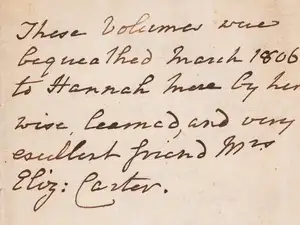 These Volumes were
bequeathed March 1806
to Hannah More by her
wise, learned, and very
excellent friend Mrs
Eliz: Carter.